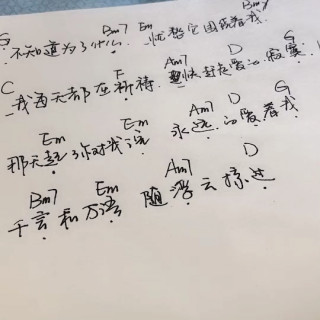 G Bm7 Em Bm7
不知道为了什么 忧愁它围绕着我
C F Am7 D G
我每天都在祈祷 快赶走爱的寂寞
Em Em Am7 D G
那天起你对我说 永远的爱着我
Bm7 Em Am7 D
千言和万语 随浮云掠过